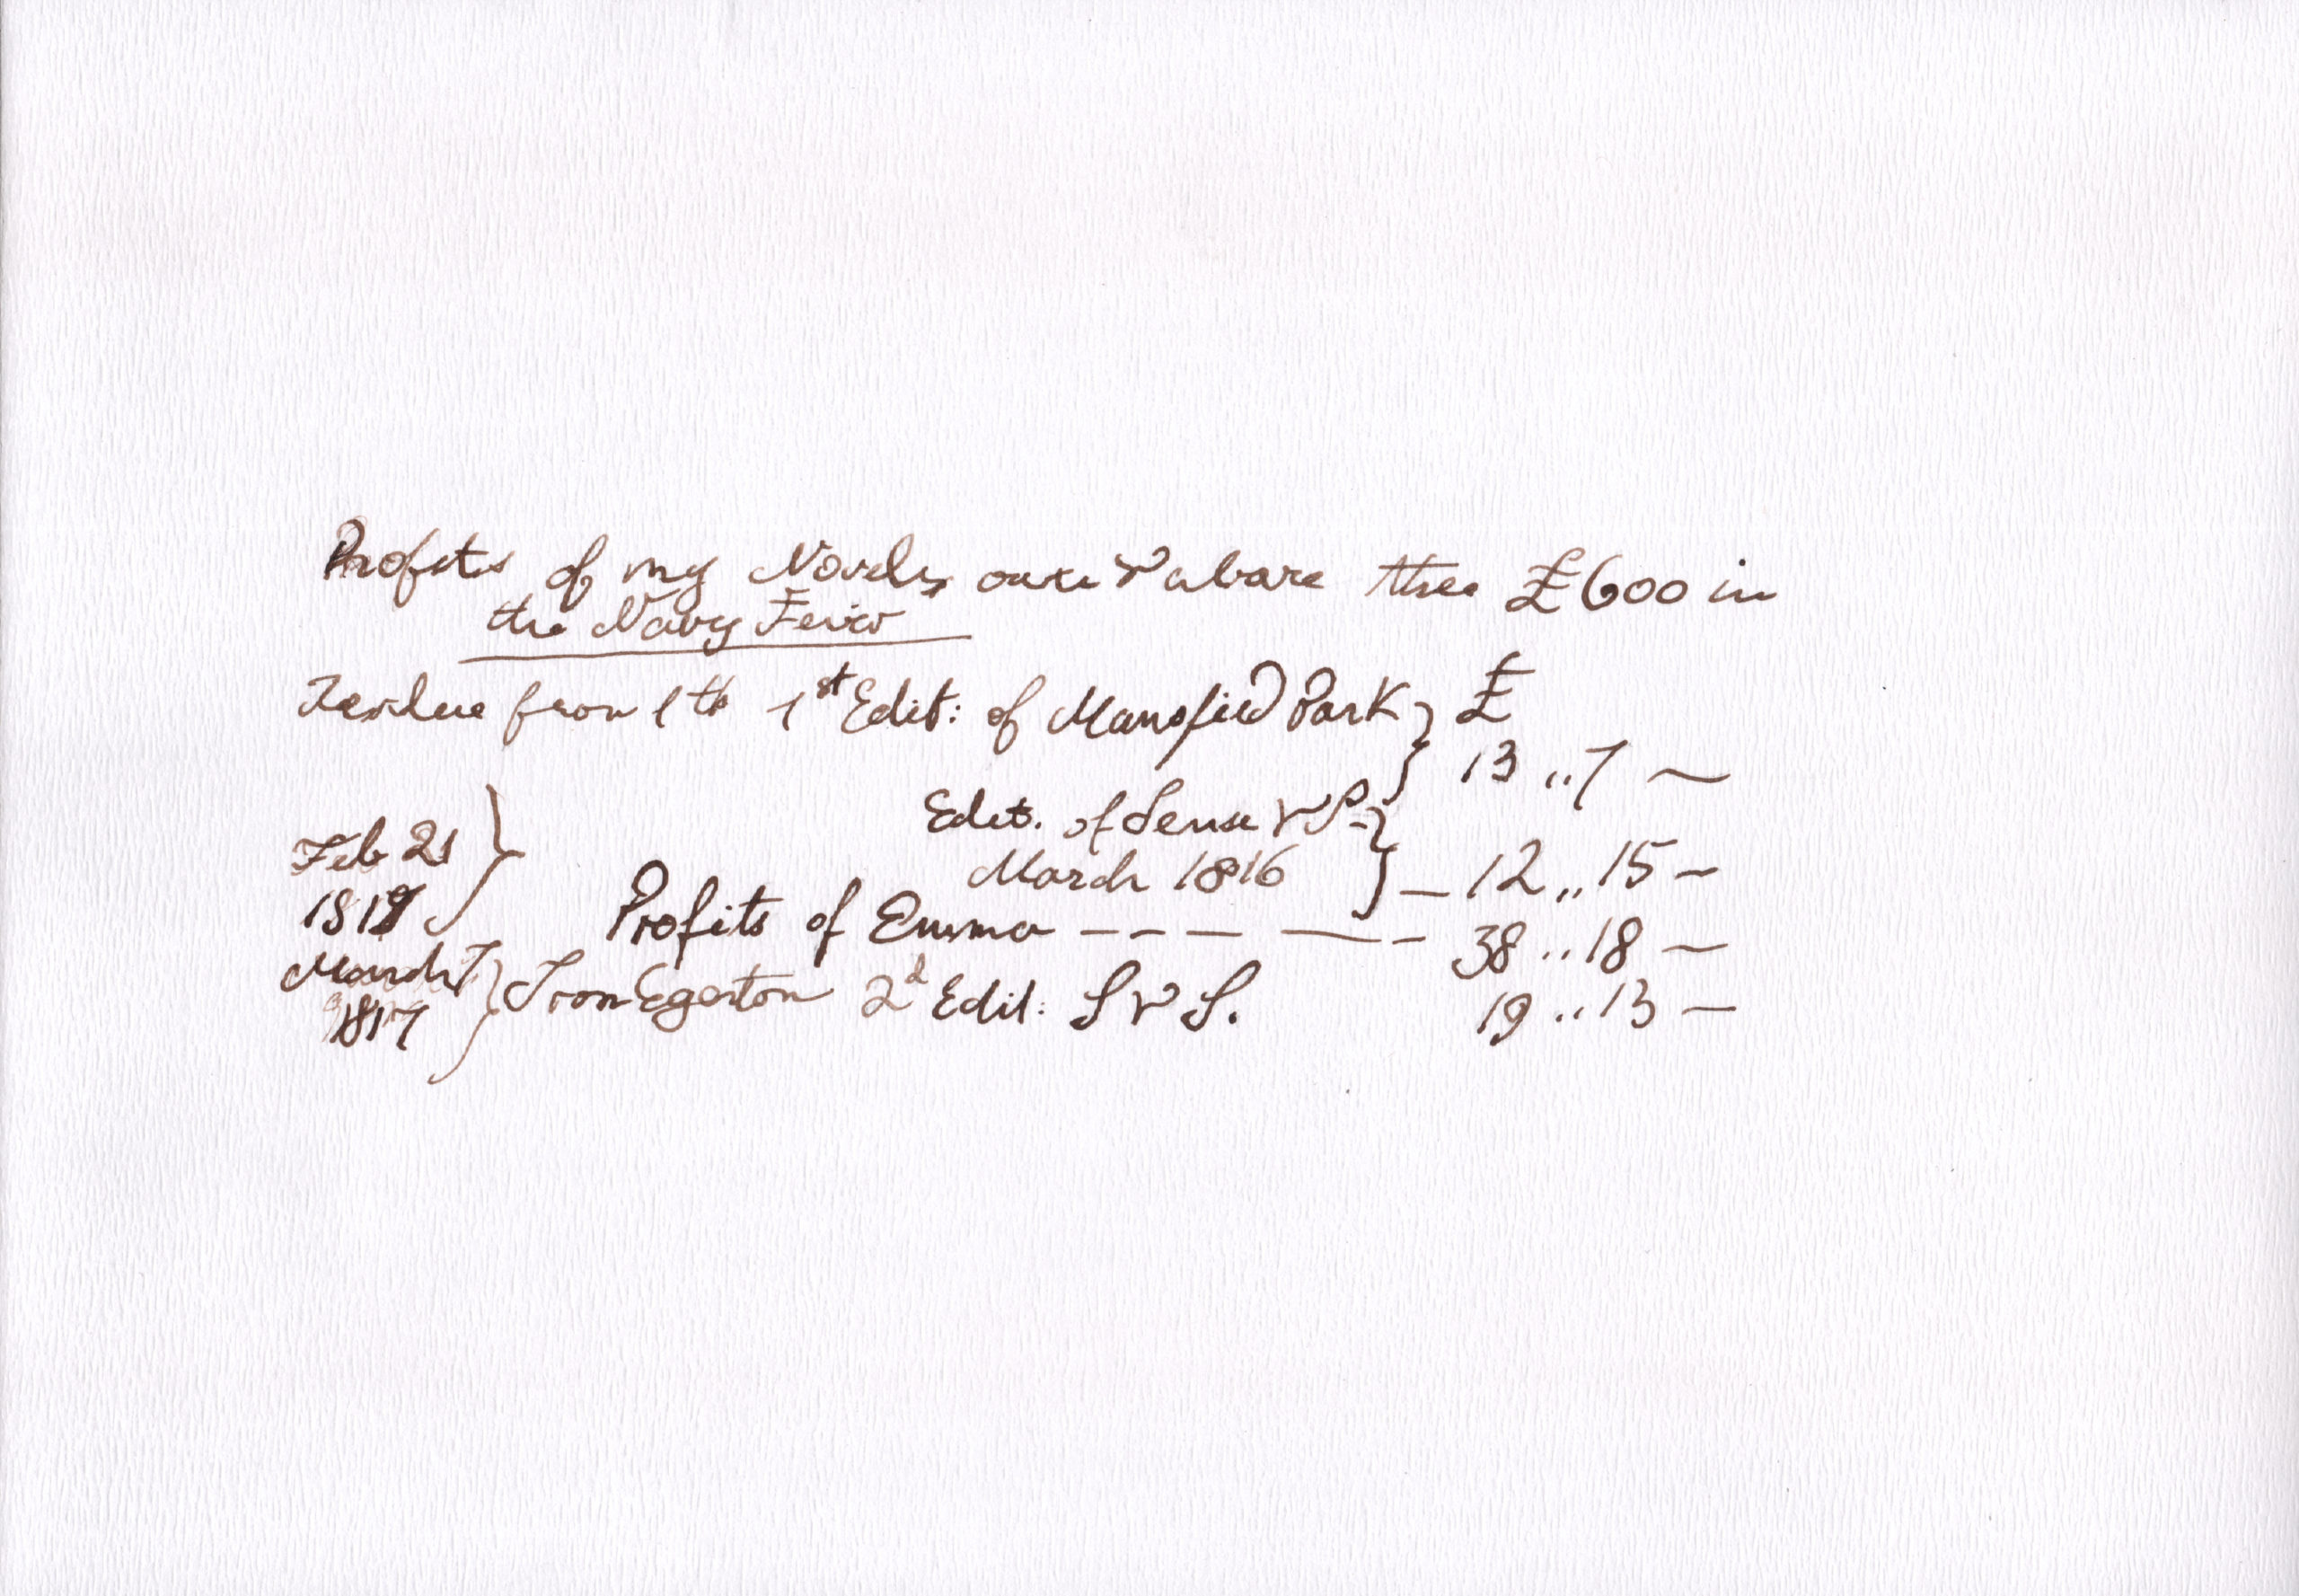 Profits of my Novels, over & above the £600 in
the Navy Fives
Residue from the 1st Edit: of Mansfield Park } £
13 ,, 7 —
Edit. of Sense & S. }
Feb 21 }
March 1816 } — 12 ,, 15 —
1817
Profits of Emma — — — — — — 38 ,, 18 —
March 7 }
From Egerton 2d Edit: S & S. 19 ,, 13 —
1817